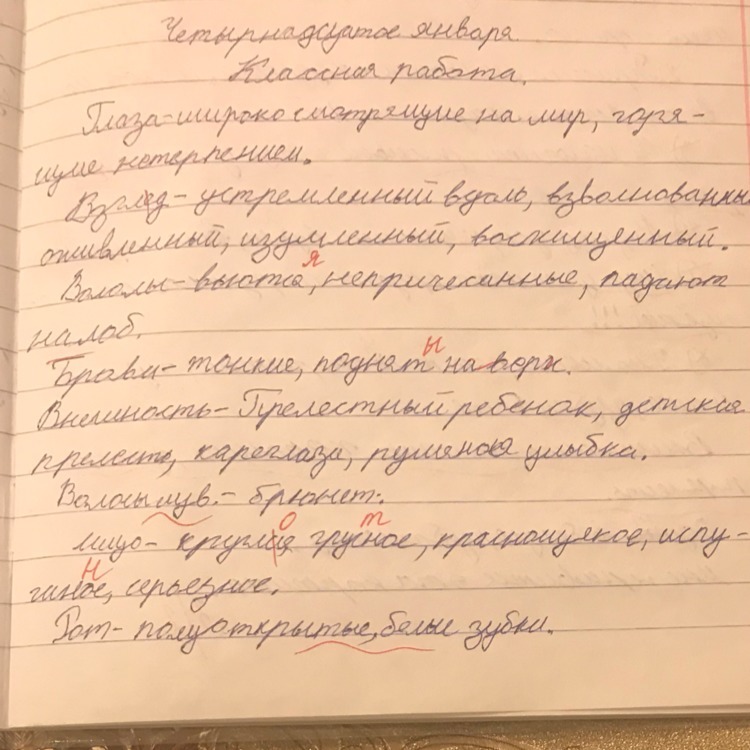 Четырнадцатое января.
Классная работа.
Глаза-широко смотрящие на мир, горя-
щие нетерпением.
Взгляд- устремленный вдоль, взволнованный
оживленный, изумленный, восхищенный.
Волосы- вьются, непричесанные, падают
на лоб.
Брови- тонкие, подняты на верх.
Внешность- Прелестный ребенок, детская
прелесть, кареглаза, румяная улыбка.
Волосы цув.- брюнет.
лицо- круглое грустное, краснощекое, испу-
ганное, серьезное.
Рот- полуоткрытые, белые зубки.